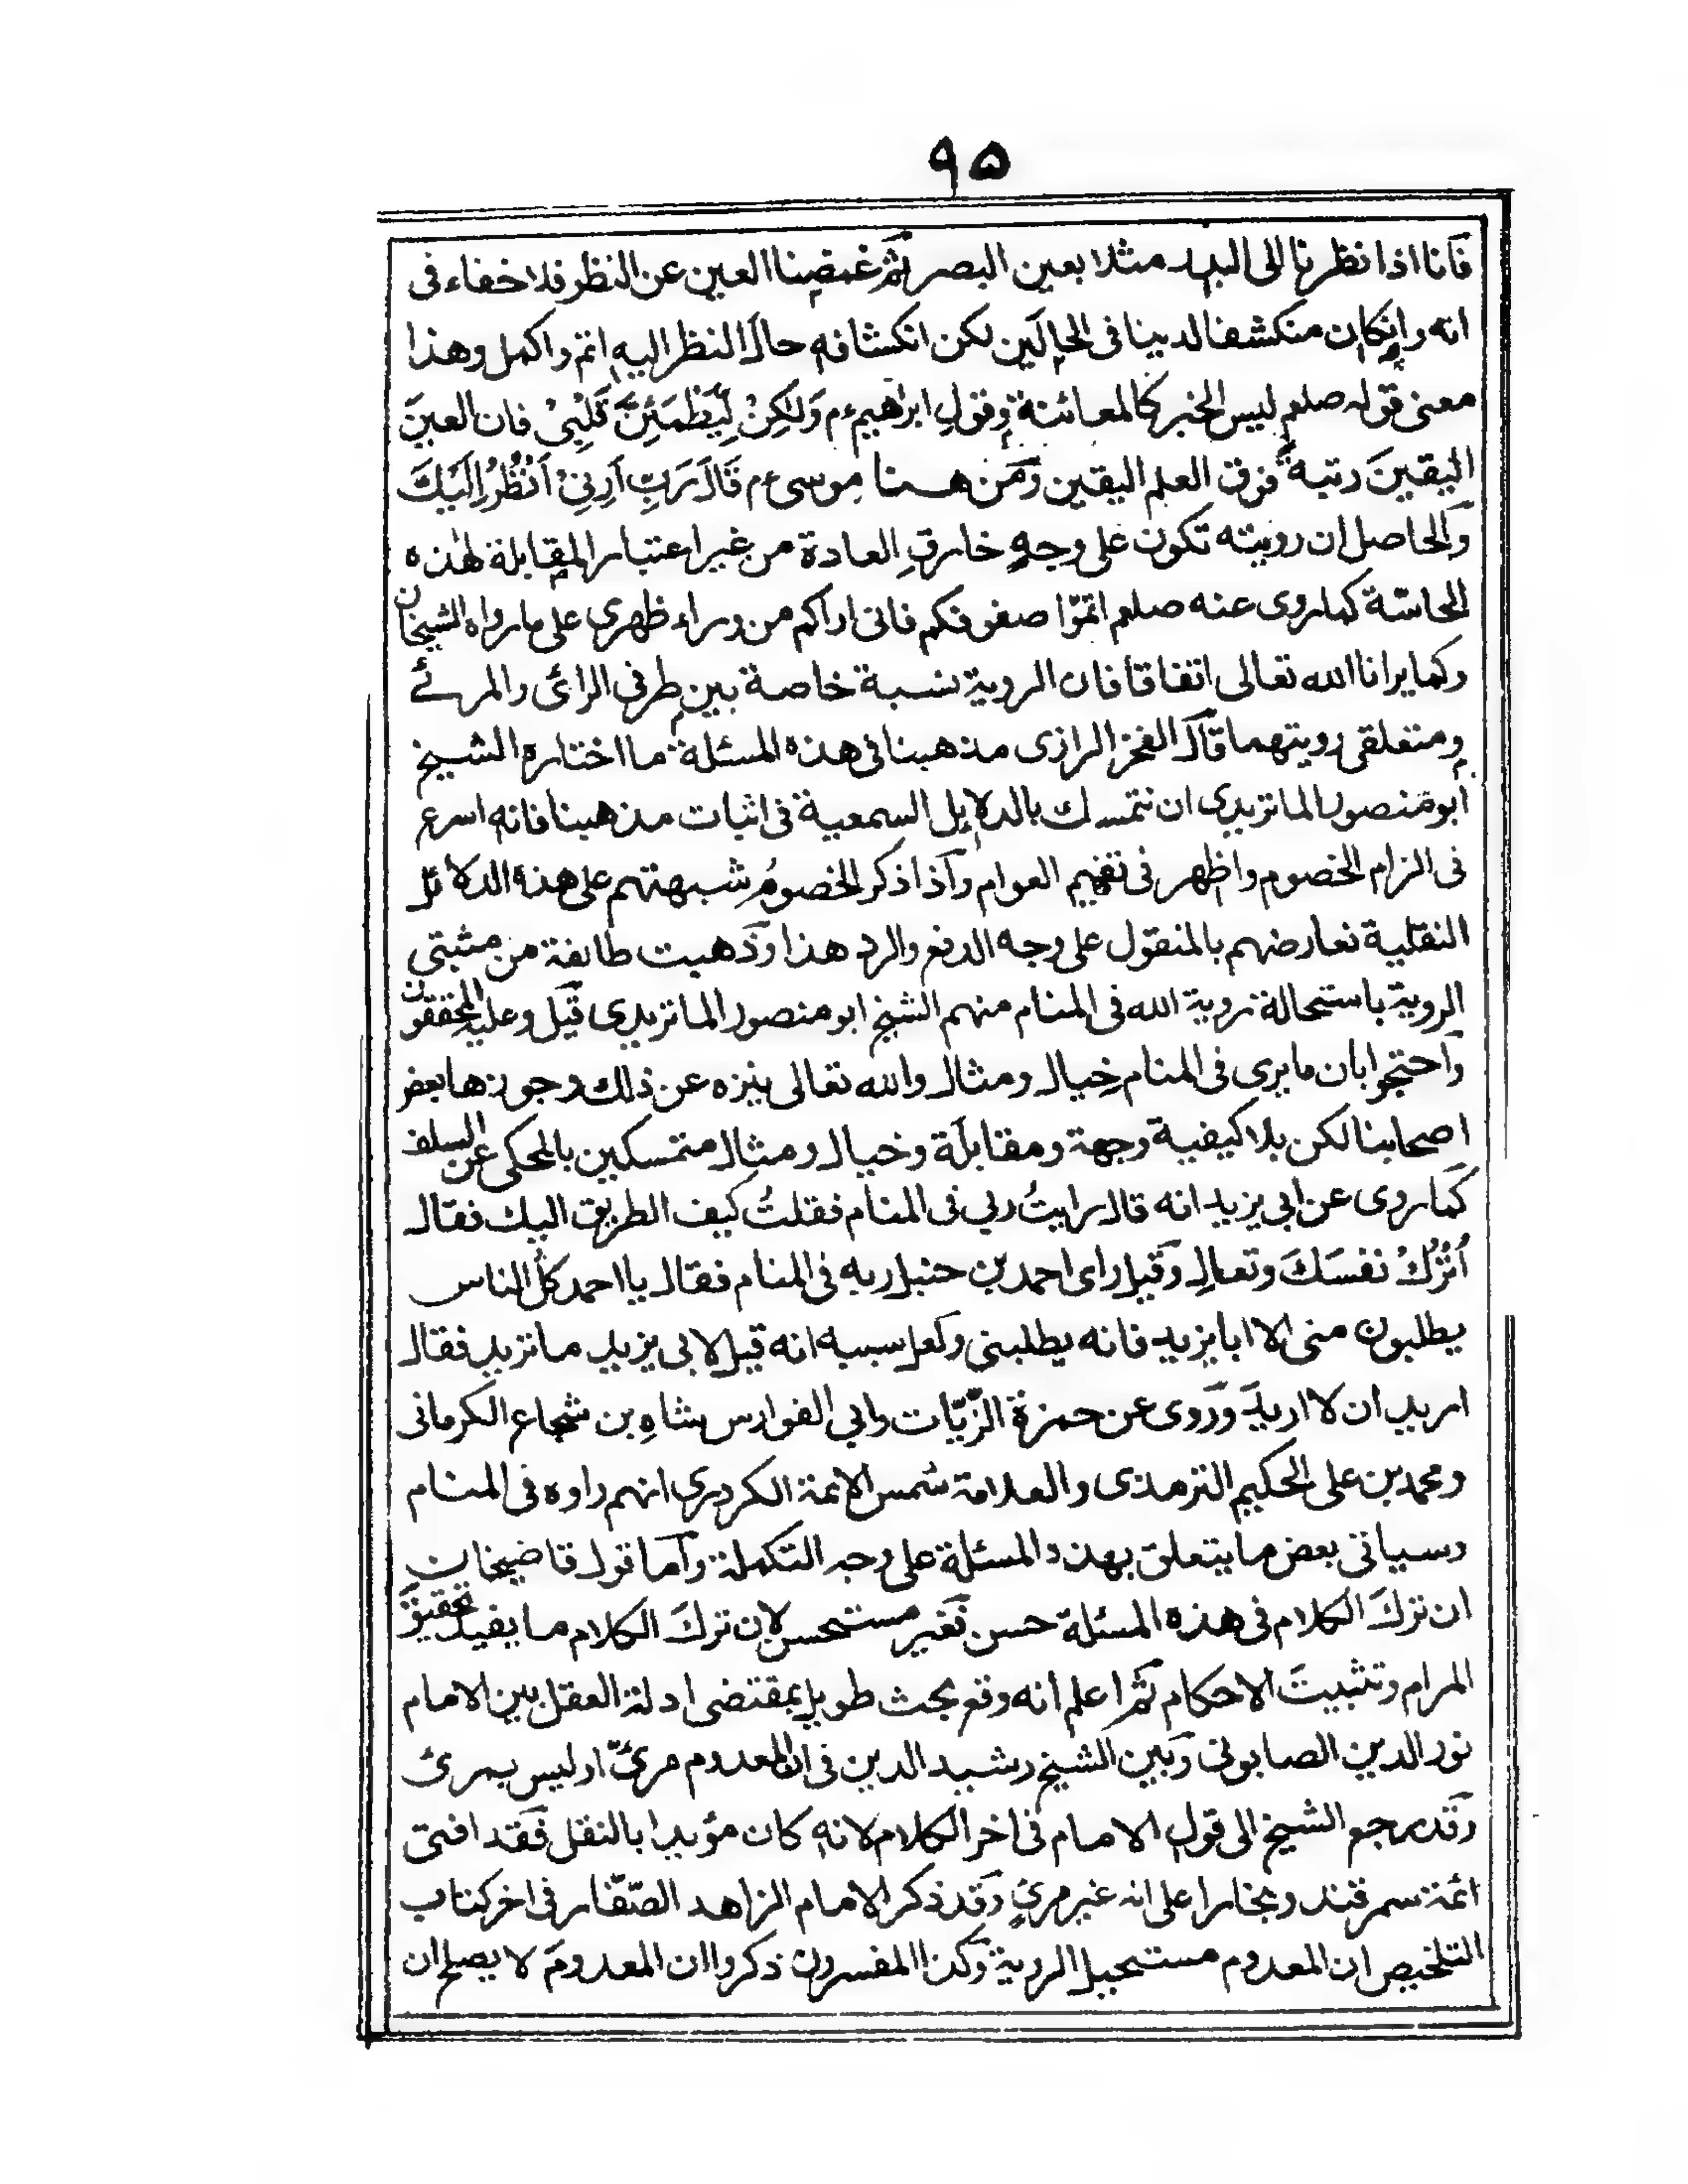 ۹۵
فانا اذا نظرنا الى البدر مثلا بعين البصر ثم غمضنا العين عن النظر فلا خفاء فى
انه وانكان منكشفا لدينا فى الحالين لكن انكشافه حال النظر اليه اتم واكمل وهذا
معنى قوله صلعم ليس الخبر كالمعائنة وقول ابراهيم ؑ م وَلٰكِنْ لِّيَطْمَئِنَّ قَلْبِىْ فان العينَ
اليقينَ رتبة فوق العلم اليقين ومن هنا موسى ؑ م قَالَ رَبِّ اَرِنِىْ اَنْظُرْ اِلَيْكَ
والحاصل ان رويته تكون على وجهٍ خارقِ العادة من غير اعتبار المقابلة لهذه
الحاسّة كما روى عنه صلعم اتمّوا صفوفكم فانى اراكم من وراء ظهرى على ما رواه الشيخان
وكما يرانا الله تعالى اتفاقا فان الروية نسبة خاصة بين طرفى الرائى والمرئے
ومتعلقى رويتهما قال الفخر الرازى مذهبنا فى هذه المسئلة ما اختاره الشيخ
ابو منصور الماتريدى ان نتمسك بالدلايل السمعية فى اثبات مذهبنا فانه اسرع
فى الزام الخصوم واظهر فى تفهيم العوام واذا ذكر الخصومُ شبهتهم على هذه الدلائل
النقلية نعارضهم بالمنقول على وجه الدفع والرد هذا وذهبت طايفة من مثبتى
الروية باستحالة روية الله فى المنام منهم الشيخ ابو منصور الماتريدى قيل وعليه المحققون
واحتجوا بان ما يرى فى المنام خيال ومثال والله تعالى ينزه عن ذلك وجوزها بعض
اصحابنا لكن بلا كيفية وجهة ومقابلة وخيال ومثال متمسكين بالمحكى عن السلف
كما روى عن ابى يزيد انه قال رايتُ ربى فى المنام فقلتُ كيف الطريق اليك فقال
اُتْرُكْ نفسَكَ وتعالِ وقيل راى احمد بن حنبل ربه فى المنام فقال يا احمد كلُّ الناس
يطلبون منى الا ابا يزيد فانه يطلبنى ولعل سببه انه قيل لابى يزيد ما تريد فقال
اريد ان لا اريدَ وروى عن حمزة الزّيّات وابى الفوارس شاهِ بن شجاع الكرمانى
ومحمد بن على الحكيم الترمذى والعلامة شمس الائمة الكردرى انهم راوه فى المنام
وسياتى بعض ما يتعلق بهذه المسئلة على وجه التكملة واما قول قاضيخان
ان تركَ الكلام فى هذه المسئلة حسن فغير مستحسن لان تركَ الكلام ما يفيد تحقيقَ
المرام وتثبيتَ الاحكام ثم اعلم انه وقع بحث طويل بمقتضى ادلة العقل بين الامام
نور الدين الصابونى وبين الشيخ رشيد الدين فى ان المعدوم مرئىّ او ليس بمرئ
وقد رجع الشيخ الى قول الامام فى اخر الكلام لانه كان مؤيدا بالنقل فقد افتى
ائمة سمرقند وبخارا على انه غير مرئٍ وقد ذكر الامام الزاهد الصّفّار فى اخر كتاب
التلخيص ان المعدوم مستحيل الروية وكذا المفسرون ذكروا ان المعدومَ لا يصلح ان